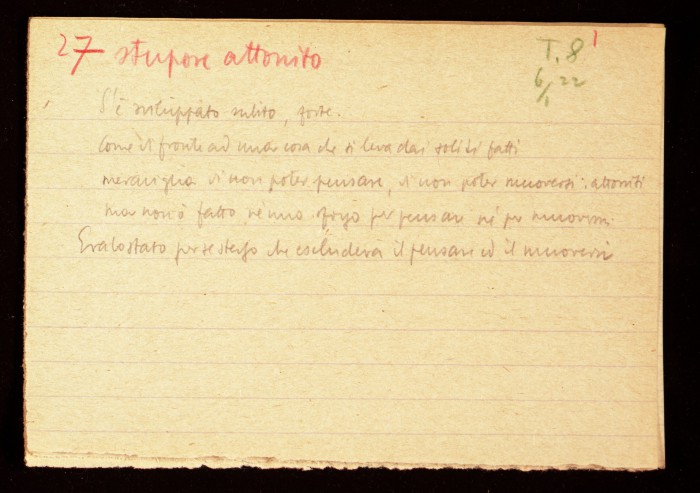 27 stupore attonito
T. 8 1
6/1 22
S'è sviluppato subito, forte.
Come di fronte ad una cosa che si leva dai soliti fatti
meraviglia di non poter pensare, di non poter muoversi: attoniti
ma non ò fatto nè uno sforzo per pensare né per muovermi
Era lo stato per se stesso che escludeva il pensare ed il muoversi